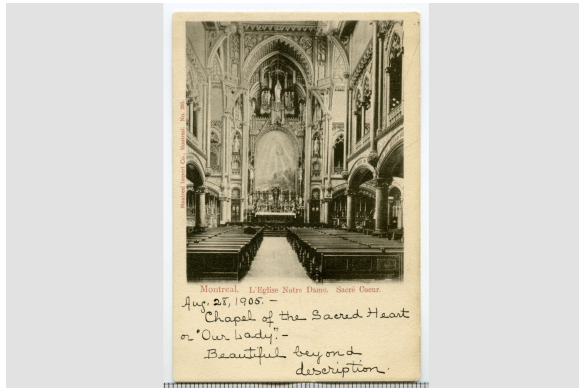 Montreal Import Co., Montreal. No. 205.
Montreal. L'Eglise Notre Dame. Sacré Coeur.
Aug. 28, 1905. -
Chapel of the Sacred Heart
or "Our Lady". -
Beautiful beyond
description.